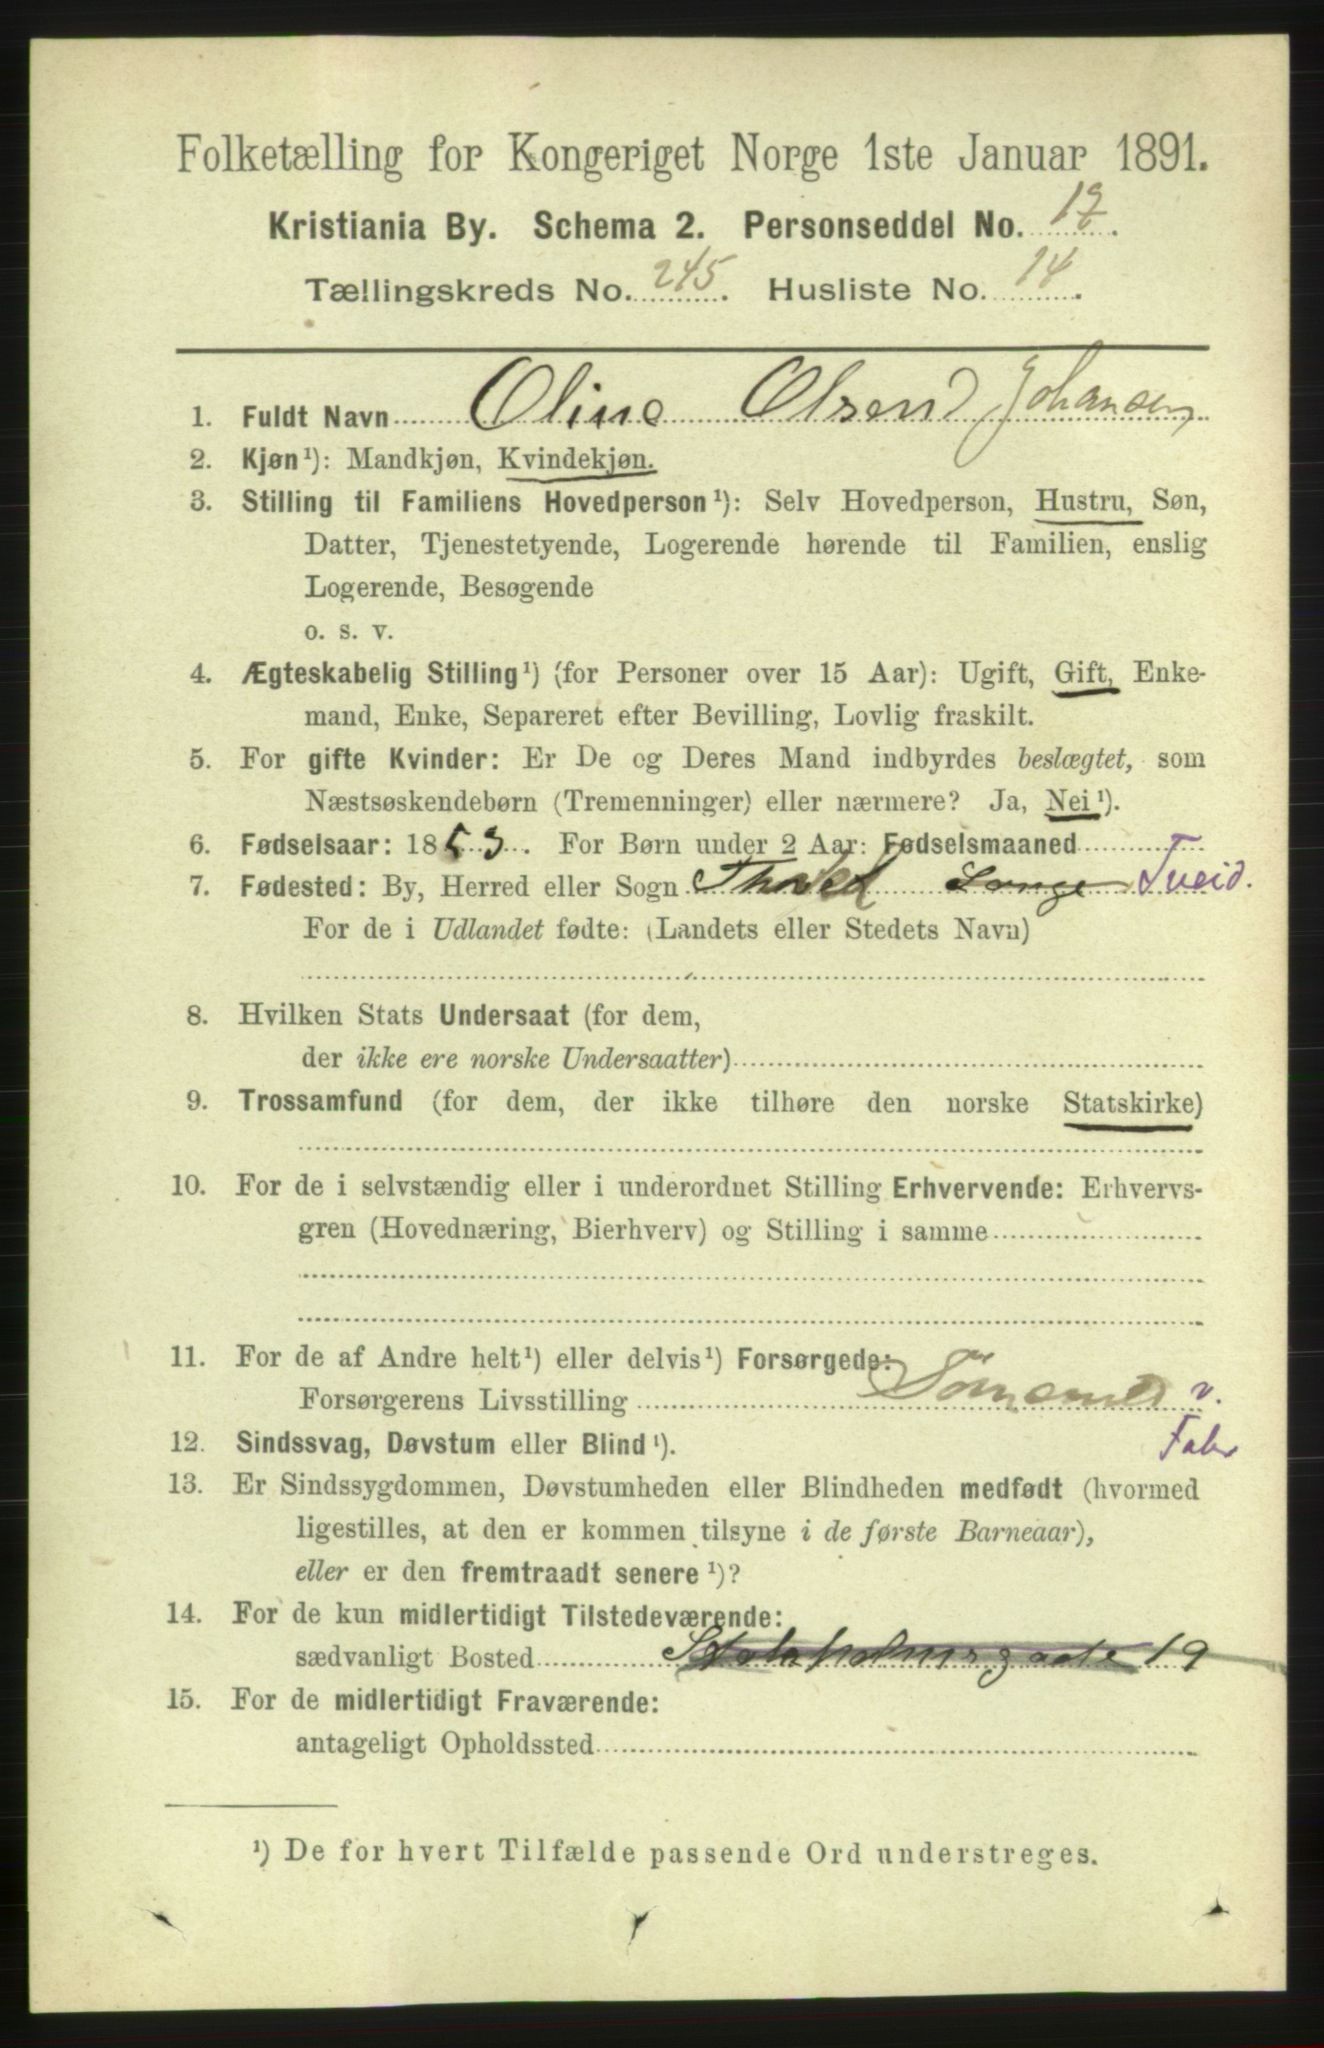 Folketælling for Kongeriget Norge 1ste Januar 1891.
Kristiania By. Schema 2. Personseddel No. 12.
Tællingskreds No. 245. Husliste No. 14.
1. Fuldt Navn Oline Olsen Johansen
2. Kjøn¹): Mandkjøn, Kvindekjøn.
3. Stilling til Familiens Hovedperson¹): Selv Hovedperson, Hustru, Søn,
Datter, Tjenestetyende, Logerende hørende til Familien, enslig
Logerende, Besøgende
o. s. v.
4. Ægteskabelig Stilling¹) (for Personer over 15 Aar): Ugift, Gift, Enke-
mand, Enke, Separeret efter Bevilling, Lovlig fraskilt.
5. For gifte Kvinder: Er De og Deres Mand indbyrdes beslægtet, som
Næstsøskendebørn (Tremenninger) eller nærmere? Ja, Nei¹).
6. Fødselsaar: 1853. For Børn under 2 Aar: Fødselsmaaned
7. Fødested: By, Herred eller Sogn Tveid.
For de i Udlandet fødte: (Landets eller Stedets Navn)
8. Hvilken Stats Undersaat (for dem,
der ikke ere norske Undersaatter)
9. Trossamfund (for dem, der ikke tilhøre den norske Statskirke)
10. For de i selvstændig eller i underordnet Stilling Erhvervende: Erhvervs-
gren (Hovednæring, Bierhverv) og Stilling i samme
11. For de af Andre helt¹) eller delvis¹) Forsørgede:
Forsørgerens Livsstilling v.
12. Sindssvag, Døvstum eller Blind¹). Fabr
13. Er Sindssygdommen, Døvstumheden eller Blindheden medfødt (hvormed
ligestilles, at den er kommen tilsyne i de første Barneaar),
eller er den fremtraadt senere¹)?
14. For de kun midlertidigt Tilstedeværende:
sædvanligt Bosted 19
15. For de midlertidigt Fraværende:
antageligt Opholdssted
¹) De for hvert Tilfælde passende Ord understreges.